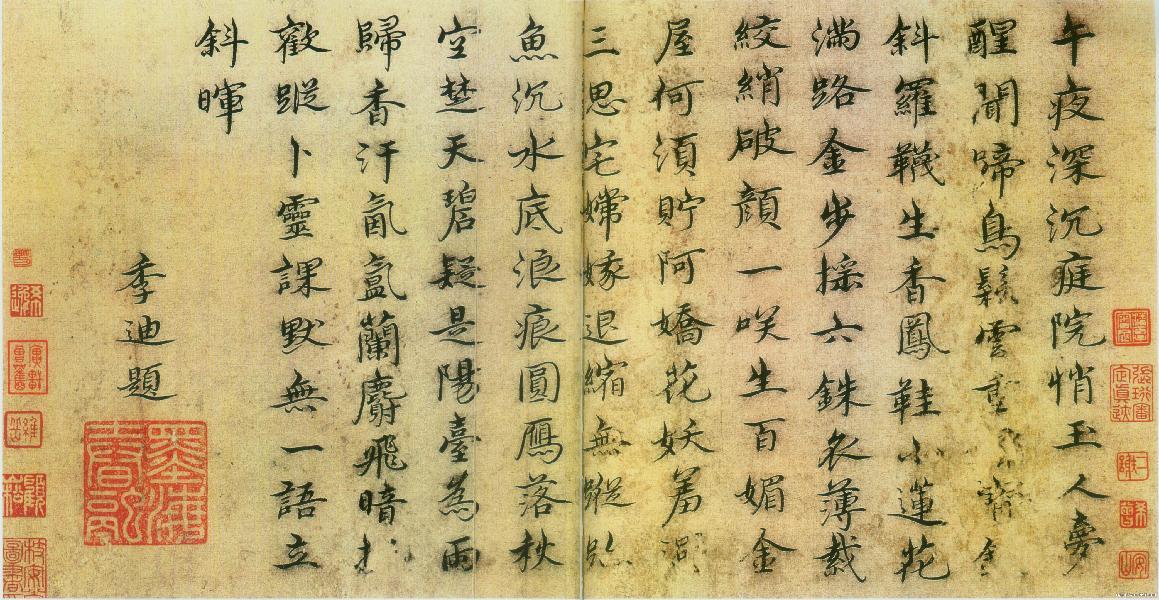 午夜深沉庭院悄玉人夢
醒聞啼鳥鬆雲重
斜羅襪生香鳳鞋小蓮花
滿路金步搖六銖衣薄裁
絞綃破顏一咲生百媚金
屋何須貯阿嬌花妖羞
三思宅嫦嫁退縮無蹤
魚沉水底浪痕圓鴈落秋
空楚天碧疑是陽臺為雨
歸香汗氤氳蘭麝飛暗
歡蹤卜靈課默無一語立
斜暉
季迪題